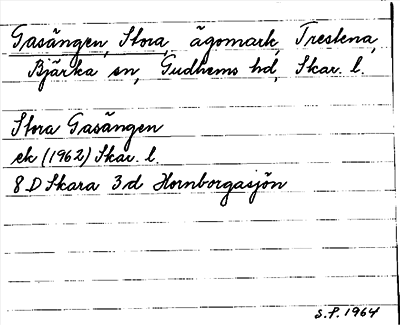 Gasängen, Stora, ägomark, Trestena,
Bjärka sn, Gudhems hd, Skar. l.
Stora Gasängen
ek (1962) Skar. l.
8 D Skara 3 d Hornborgasjön
S.F. 1964